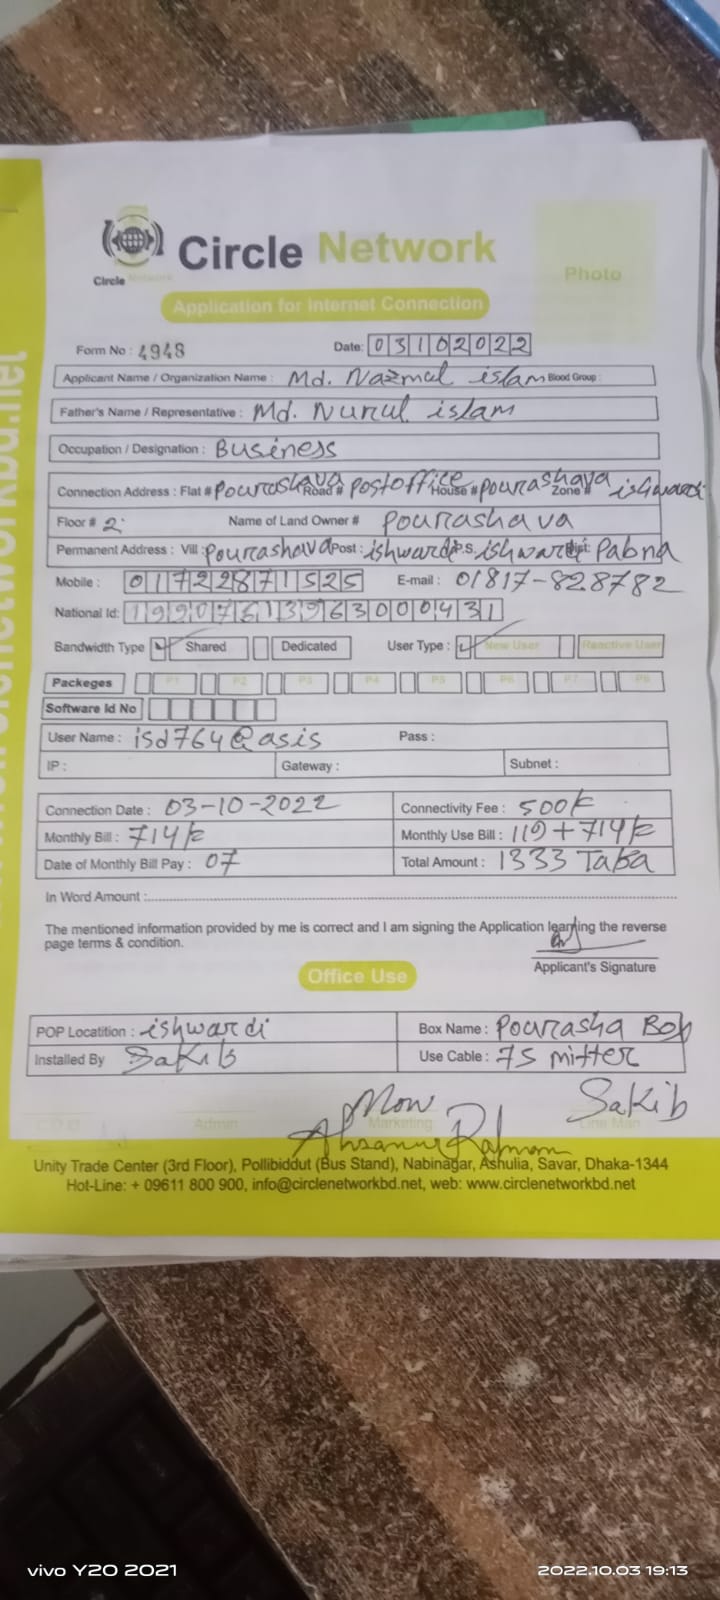 Circle Network
Circle Network
Photo
Application for Internet Connection
Form No : 4948 Date: 03102022
Applicant Name / Organization Name : Md. Nazmul islam Blood Group :
Father's Name / Representative : Md. Nurul islam
Occupation / Designation : Business
Connection Address : Flat # Pourashava Road # Postoffice House # pourashava Zone # ishwardi
Floor # 2 Name of Land Owner # Pourashava
Permanent Address : Vill : Pourashava Post : ishwardi P.S. ishwardi Dist: Pabna
Mobile : 01722871525 E-mail : 01817-828782
National Id: 19907613963000431
Bandwidth Type Shared Dedicated User Type : New User Reactive User
Packeges P1 P2 P3 P4 P5 P6 P7 P8
Software Id No
User Name : isd764@asis Pass :
IP : Gateway : Subnet :
Connection Date : 03-10-2022 Connectivity Fee : 500/k
Monthly Bill : 714/k Monthly Use Bill : 119+714/k
Date of Monthly Bill Pay : 07 Total Amount : 1333 Taka
In Word Amount :
The mentioned information provided by me is correct and I am signing the Application learning the reverse
page terms & condition.
Applicant's Signature
Office Use
POP Locatition : ishwardi Box Name : Pourasha Box
Installed By Sakib Use Cable : 75 mitter
Mow Sakib
C.O.O Admin Marketing Line Man
Ahsanur Rahman
Unity Trade Center (3rd Floor), Pollibiddut (Bus Stand), Nabinagar, Ashulia, Savar, Dhaka-1344
Hot-Line: + 09611 800 900, info@circlenetworkbd.net, web: www.circlenetworkbd.net
vivo Y20 2021 2022.10.03 19:13